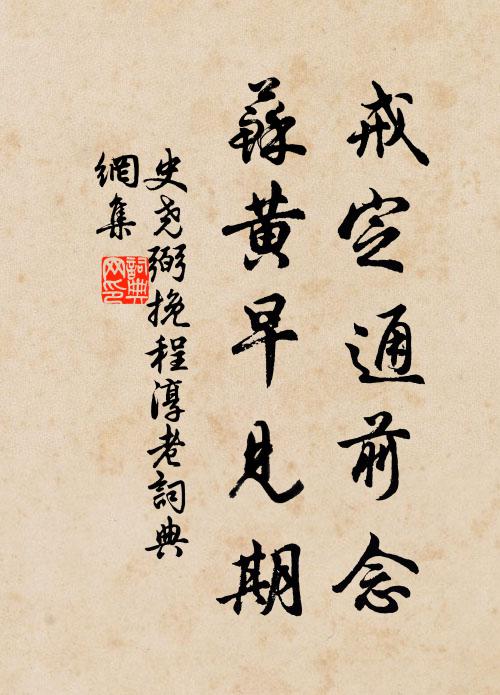 戒定通前念
蘇黄早見期
史堯弼挽程淳老詞典
網集
詞典
网印